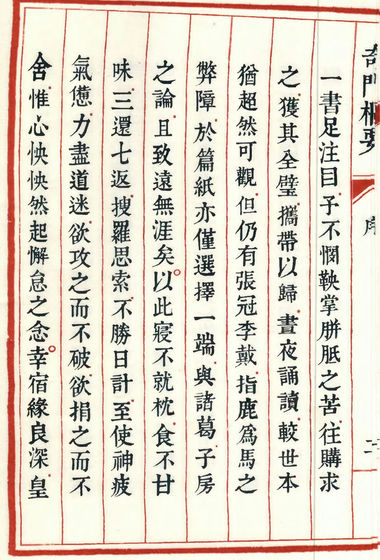 奇門樞要
序
一書足注目子不憫鞅掌胼胝之苦往購求
之獲其全璧攜帶以歸晝夜誦讀較世本
猶超然可觀但仍有張冠李戴指鹿爲馬之
弊障於篇紙亦僅選擇一端與諸葛子房
之論且致遠無涯矣以此寢不就枕食不甘
味三還七返搜羅思索不勝日計至使神疲
氣憊力盡道迷欲攻之而不破欲捐之而不
舍惟心怏怏然起懈怠之念幸宿緣良深皇